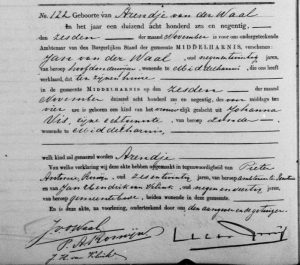 No 122 Geboorte van Arendje van der Waal
En het jaar een duizend acht honderd zes en negentig,
den zesden der maand November is voor ons ondergeteekende
Ambtenaar van den Burgerlijken Stand der gemeente MIDDELHARNIS, verschenen:
Jan van der Waal, oud
van beroep wonende te Middelharnis, die ons heeft
verklaard, dat ten zijnen huize
in de gemeente MIDDELHARNIS op den zesden der maand
November duizend acht honderd zes en negentig, des voor middags ter
vier ure is geboren een kind van het vrouwelijk geslacht uit Johanna
Vis, zijne echtgenoote, van beroep zonder,
wonende te Middelharnis,
welk kind zal genaamd worden Arendje
Van welke verklaring wij deze akte hebben opgemaakt in tegenwoordigheid van Pieter
oud zes en veertig jaren, van beroep
en Jan Hendrik van oud negen en veertig jaren,
van beroep gemeentebode, beiden wonende in deze gemeente.
En is deze akte, na voorlezing, onderteekend door ons den aangever en de getuigen.
J. v. d. Waal